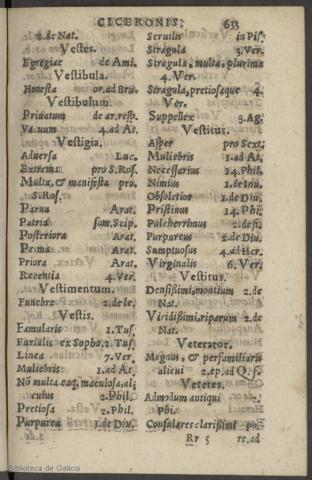 CICERONIS. 633
2.de Nat.
Vestes.
Egregiae de Ami.
Vestibula.
Honesta or.ad Bru.
Vestibulum.
Priuatum de ar.resp.
Vacuum 4.ad At.
Vestigia.
Aduersa Luc.
Extrema pro S.Ros.
Multa,& manifesta pro.
S.Ros.
Parua Arat.
Patria som.Scip.
Posteriora Arat.
Prima Arat.
Priora Arat.
Recentia 4.Ver.
Vestimentum.
Funebre 2.de le.
Vestis.
Famularis 1.Tus.
Furialis ex Sopho.2.Tus.
Linea 7.Ver.
Muliebris 1.ad At.
Nō multa eaq, maculosa,ali
cuius 2.Phil.
Pretiosa 2.Phil.
Purpurea 1.de Diu.
Seruilis in Pis.
Stragula 3.Ver.
Stragula, multa, plurima
4.Ver.
Stragula,pretiosaque 4.
Ver.
Suppellex 3.Ag.
Vestitus.
Asper pro Sext.
Muliebris 1.ad At.
Necessarius 14.Phil.
Nimius 1.de Inu.
Obsoletior 1.de Diu.
Pristinus 14.Phi.
Pulcherrimus 2.de fi.
Purpureus 2.de Diu.
Sumptuosus 4.ad Her.
Virginalis 6.Ver.
Vestitus.
Densissimi,montium 2.de
Nat.
Viridissimi,riparum 2.de
Nat.
Veterator.
Magnus, & perfamiliaris
alicui 2.ep.ad Q.f.
Veteres.
Admodum antiqui 2.
Phi.
Consulares clarissimi po
Rr 5 re,ad
Biblioteca de Galicia